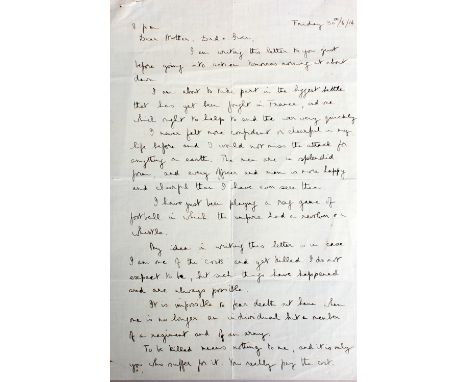 8 pm Friday 30th/6/16
Dear Mother, Dad &
I am writing this letter to you just
before going into action tomorrow morning at about
dawn.
I am about to take part in the biggest battle
that has yet been fought in France, and one
which ought to help to end the war very quickly.
I never felt more confident or cheerful in my
life before and I would not miss the attack for
anything on earth. The men are in splendid
form, and every officer and man is more happy
and cheerful than I have ever seen them.
I have just been playing a rag game of
football in which the umpire had a revolver &
whistle.
My idea in writing this letter is in case
I am one of the costs and get killed. I do not
expect to be, but such things have happened
and are always possible.
It is impossible to fear death out here when
one is no longer an individual but a member
of a regiment and of an army.
To be killed means nothing to me, and it is only
you who suffer for it. You really pay the cost.